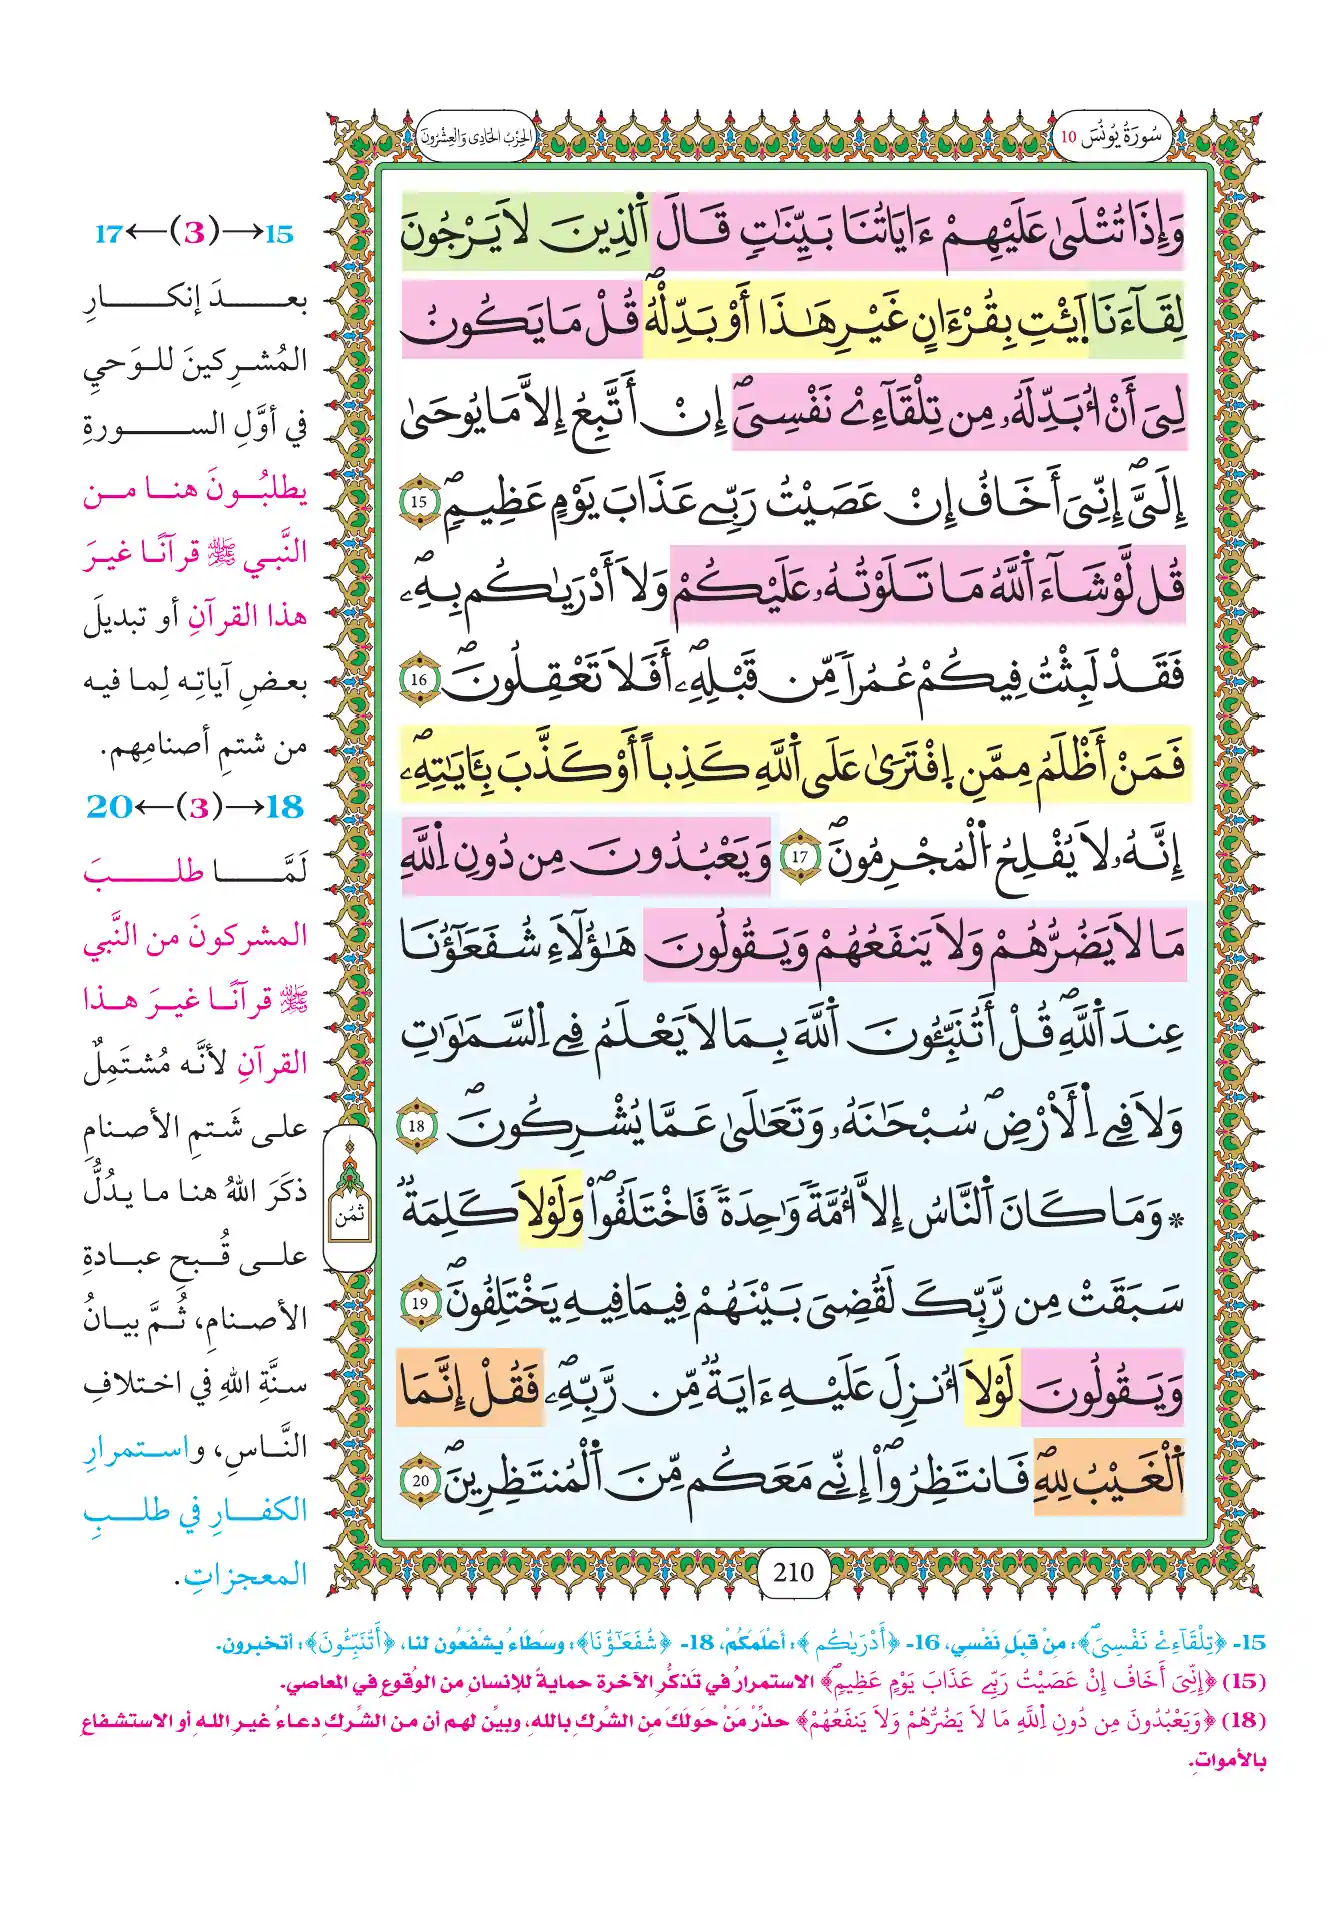 سُورَةُ يُونُسَ 10
الحِزْبُ الحَادِي وَالعِشْرُونَ
وَإِذَا تُتْلَىٰ عَلَيْهِمْ ءَايَاتُنَا بَيِّنَٰتٖ قَالَ اَ۬لذِينَ لَا يَرْجُونَ
لِقَآءَنَا اَ۪ئْتِ بِقُرْءَانٍ غَيْرِ هَٰذَا أَوْ بَدِّلْهُۖ قُلْ مَا يَكُونُ
لِىَ أَنْ ا۟بَدِّلَهُۥ مِن تِلْقَآءِےْ نَفْسِىَۖ إِنْ أَتَّبِعُ إِلَّا مَا يُوحَىٰ
إِلَىَّۖ إِنِّىَ أَخَافُ إِنْ عَصَيْتُ رَبِّے عَذَابَ يَوْمٍ عَظِيمٖۖ 15
قُل لَّوْ شَآءَ اَ۬للَّهُ مَا تَلَوْتُهُۥ عَلَيْكُمْ وَلَا أَدْرَىٰكُم بِهِۦۖ
فَقَدْ لَبِثْتُ فِيكُمْ عُمُراٗ مِّن قَبْلِهِۦۖ أَفَلَا تَعْقِلُونَۖ 16
فَمَنْ أَظْلَمُ مِمَّنِ اِ۪فْتَرَىٰ عَلَى اَ۬للَّهِ كَذِباً أَوْ كَذَّبَ بِـَٔايَٰتِهِۦۖ
إِنَّهُۥ لَا يُفْلِحُ اُ۬لْمُجْرِمُونَۖ 17 وَيَعْبُدُونَ مِن دُونِ اِ۬للَّهِ
مَا لَا يَضُرُّهُمْ وَلَا يَنفَعُهُمْ وَيَقُولُونَ هَٰٓؤُلَآءِ شُفَعَٰٓؤُنَا
عِندَ اَ۬للَّهِۖ قُلْ أَتُنَبِّـُٔونَ اَ۬للَّهَ بِمَا لَا يَعْلَمُ فِے اِ۬لسَّمَٰوَٰتِ
وَلَا فِے اِ۬لْأَرْضِۖ سُبْحَٰنَهُۥ وَتَعَٰلَىٰ عَمَّا يُشْرِكُونَۖ 18
* وَمَا كَانَ اَ۬لنَّاسُ إِلَّا أُمَّةٗ وَٰحِدَةٗ فَاخْتَلَفُواْۖ وَلَوْلَا كَلِمَةٞ
سَبَقَتْ مِن رَّبِّكَ لَقُضِىَ بَيْنَهُمْ فِيمَا فِيهِ يَخْتَلِفُونَۖ 19
وَيَقُولُونَ لَوْلَا أُنزِلَ عَلَيْهِ ءَايَةٞ مِّن رَّبِّهِۦۖ فَقُلْ إِنَّمَا
اَ۬لْغَيْبُ لِلهِۖ فَانتَظِرُوٓاْۖ إِنِّے مَعَكُم مِّنَ اَ۬لْمُنتَظِرِينَۖ 20
210
ثمُن
15→(3)←17
بعدَ إنكارِ
المُشرِكينَ للوَحيِ
في أوَّلِ السورةِ
يطلبُونَ هنا من
النَّبي ﷺ قرآنًا غيرَ
هذا القرآنِ أو تبديلَ
بعضِ آياتِه لِما فيه
من شتمِ أصنامِهم.
18→(3)←20
لَمَّا طلبَ
المشركونَ من النَّبي
ﷺ قرآنًا غيرَ هذا
القرآنِ لأنَّه مُشتَمِلٌ
على شَتمِ الأصنامِ
ذكَرَ اللهُ هنا ما يدُلُّ
على قُبحِ عبادةِ
الأصنامِ، ثُمَّ بيانُ
سنَّةِ اللهِ في اختلافِ
النَّاسِ، واستمرارِ
الكفارِ في طلبِ
المعجزاتِ.
15- ﴿تِلْقَآءِےْ نَفْسِىَۖ﴾: مِنْ قِبَلِ نَفْسِي، 16- ﴿أَدْرَىٰكُم﴾: أعْلَمَكُمْ، 18- ﴿شُفَعَٰٓؤُنَا﴾: وسَطَاءُ يشْفَعُون لنا، ﴿أَتُنَبِّـُٔونَ﴾: أتخبرون.
(15) ﴿إِنِّىَ أَخَافُ إِنْ عَصَيْتُ رَبِّے عَذَابَ يَوْمٍ عَظِيمٖ﴾ الاستمرارُ في تَذكُّرِ الآخرة حمايةً للإنسانِ من الوُقوعِ في المعاصي.
(18) ﴿وَيَعْبُدُونَ مِن دُونِ اِ۬للَّهِ مَا لَا يَضُرُّهُمْ وَلَا يَنفَعُهُمْ﴾ حذِّرْ مَنْ حَولكَ مِن الشِّركِ بالله، وبيِّن لهم أن من الشِّركِ دعاءُ غيرِ اللهِ أو الاستشفاع
بالأمواتِ.